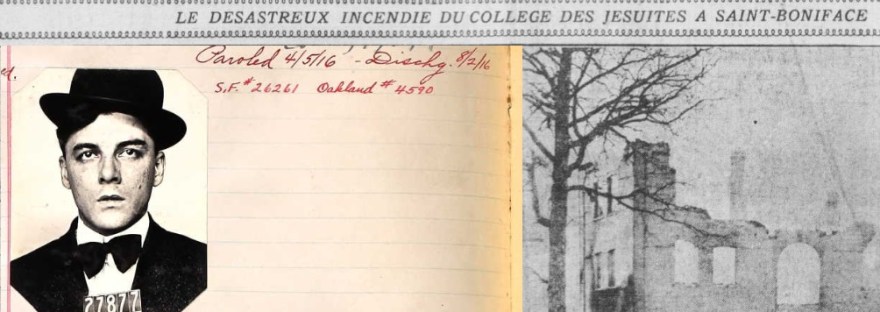 LE DESASTREUX INCENDIE DU COLLEGE DES JESUITES A SAINT-BONIFACE
ed.
Paroled 4/5/16 - Dischg. 8/2/16
S.F. # 26261 Oakland # 4590
27877